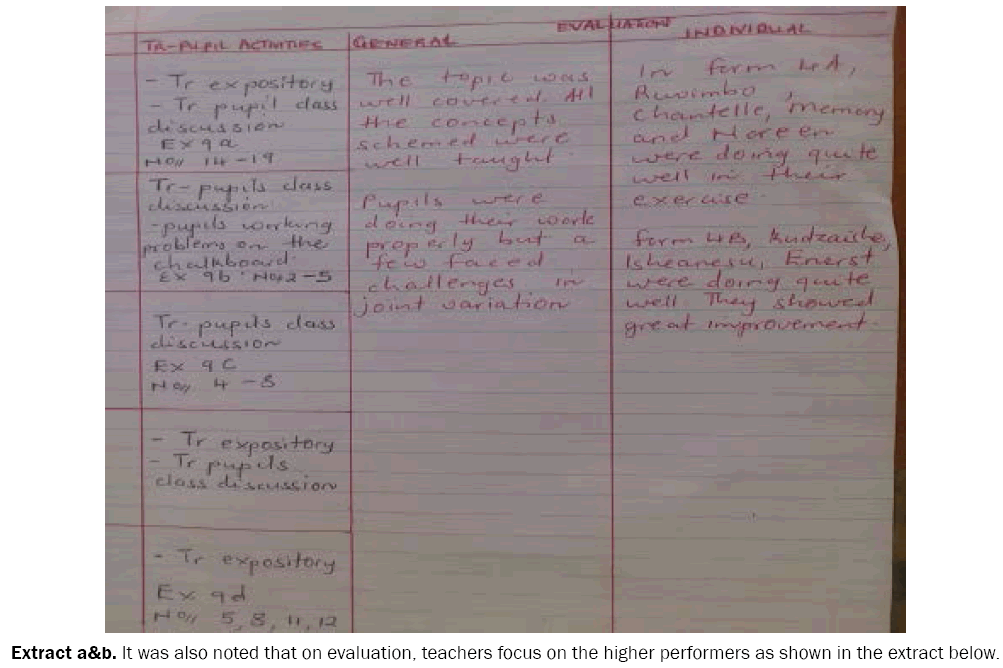 EVALUATION
TR-PUPIL ACTIVITIES
GENERAL
INDIVIDUAL
- Tr expository
- Tr pupil class
discussion
Ex 9a
No// 14-19
Tr-pupils class
discussion
-pupils working
problems on the
chalkboard.
Ex 9b. No// 2-5
Tr-pupils class
discussion
Ex 9c
No// 4-8
- Tr expository
- Tr pupils
class discussion
- Tr expository
Ex 9d
No// 5, 8, 11, 12
The topic was
well covered. All
the concepts
schemed were
well taught.
Pupils were
doing their work
properly but a
few faced
challenges in
joint variation
In form 4A,
Ruvimbo,
Chantelle, Memory
and Noreen
were doing quite
well in their
exercise.
form 4B, Kudzaishe,
Isheanesu, Enerst
were doing quite
well. They showed
great improvement.
Extract a&b. It was also noted that on evaluation, teachers focus on the higher performers as shown in the extract below.